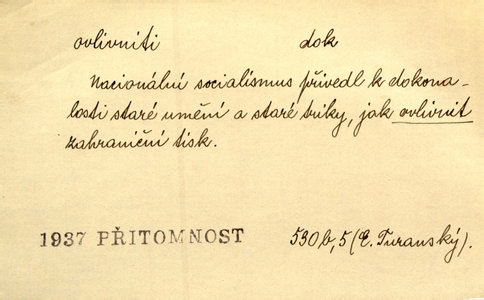 ovlivniti dok
Nacionální socialismus přivedl k dokona-
losti staré umění a staré triky, jak ovlivnit
zahraniční tisk.
1937 PŘITOMNOST 530b,5 (E. Turanský).